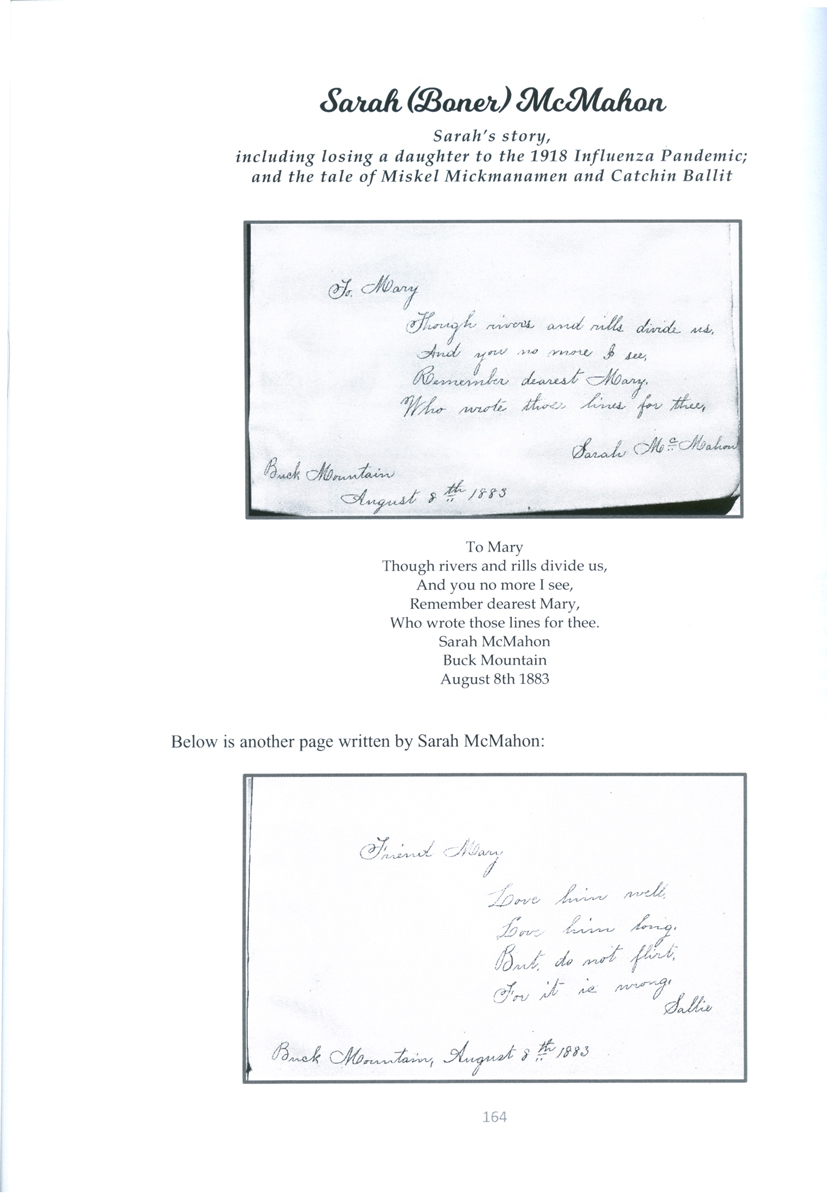 Sarah (Boner) McMahon
Sarah's story,
including losing a daughter to the 1918 Influenza Pandemic;
and the tale of Miskel Mickmanamen and Catchin Ballit
To. Mary
Though rivers and rills divide us,
And you no more I see,
Remember dearest Mary.
Who wrote those lines for thee,
Sarah Mc Mahon
Buck Mountain
August 8th 1883
To Mary
Though rivers and rills divide us,
And you no more I see,
Remember dearest Mary,
Who wrote those lines for thee.
Sarah McMahon
Buck Mountain
August 8th 1883
Below is another page written by Sarah McMahon:
Friend Mary
Love him well.
Love him long.
But. do not flirt.
For it is wrong.
Sallie
Buck Mountain, August 8th 1883
164